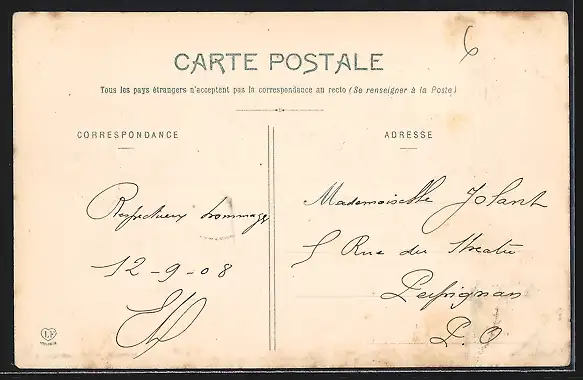 CARTE POSTALE
Tous les pays étrangers n'acceptent pas la correspondance au recto (Se renseigner à la Poste)
CORRESPONDANCE
ADRESSE
Respectueux hommages
12-9-08
Mademoiselle Jolant
5 Rue du Theatre
Perpignan
P. O
6